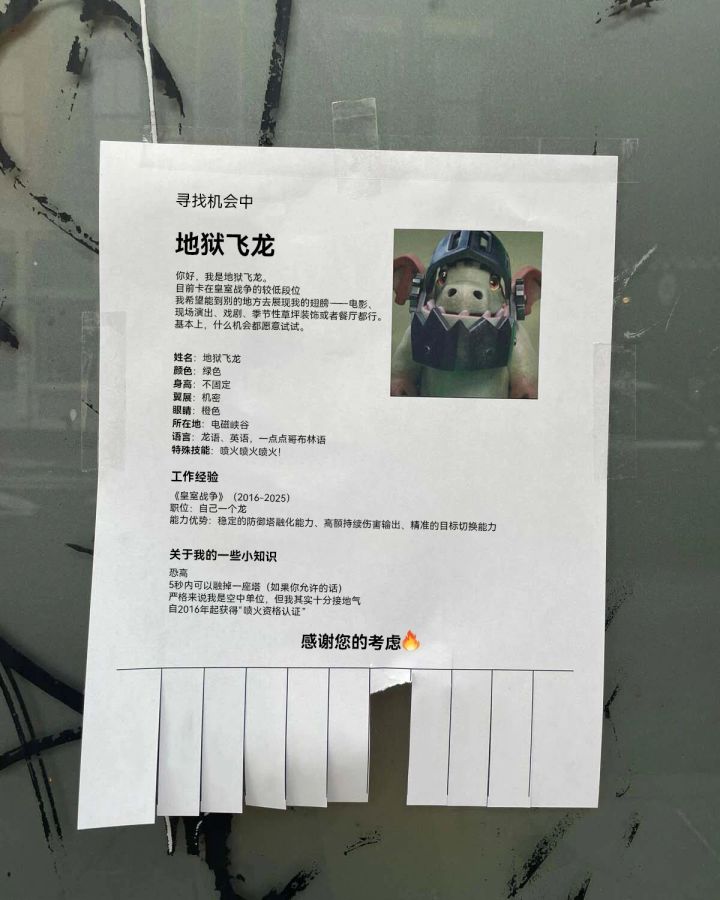 寻找机会中
地狱飞龙
你好，我是地狱飞龙。
目前卡在皇室战争的较低段位
我希望能到别的地方去展现我的翅膀——电影、
现场演出、戏剧、季节性草坪装饰或者餐厅都行。
基本上，什么机会都愿意试试。
姓名：地狱飞龙
颜色：绿色
身高：不固定
翼展：机密
眼睛：橙色
所在地：电磁峡谷
语言：龙语、英语，一点点哥布林语
特殊技能：喷火喷火喷火！
工作经验
《皇室战争》（2016–2025）
职位：自己一个龙
能力优势：稳定的防御塔融化能力、高额持续伤害输出、精准的目标切换能力
关于我的一些小知识
恐高
5秒内可以融掉一座塔（如果你允许的话）
严格来说我是空中单位，但我其实十分接地气
自2016年起获得"喷火资格认证"
感谢您的考虑🔥